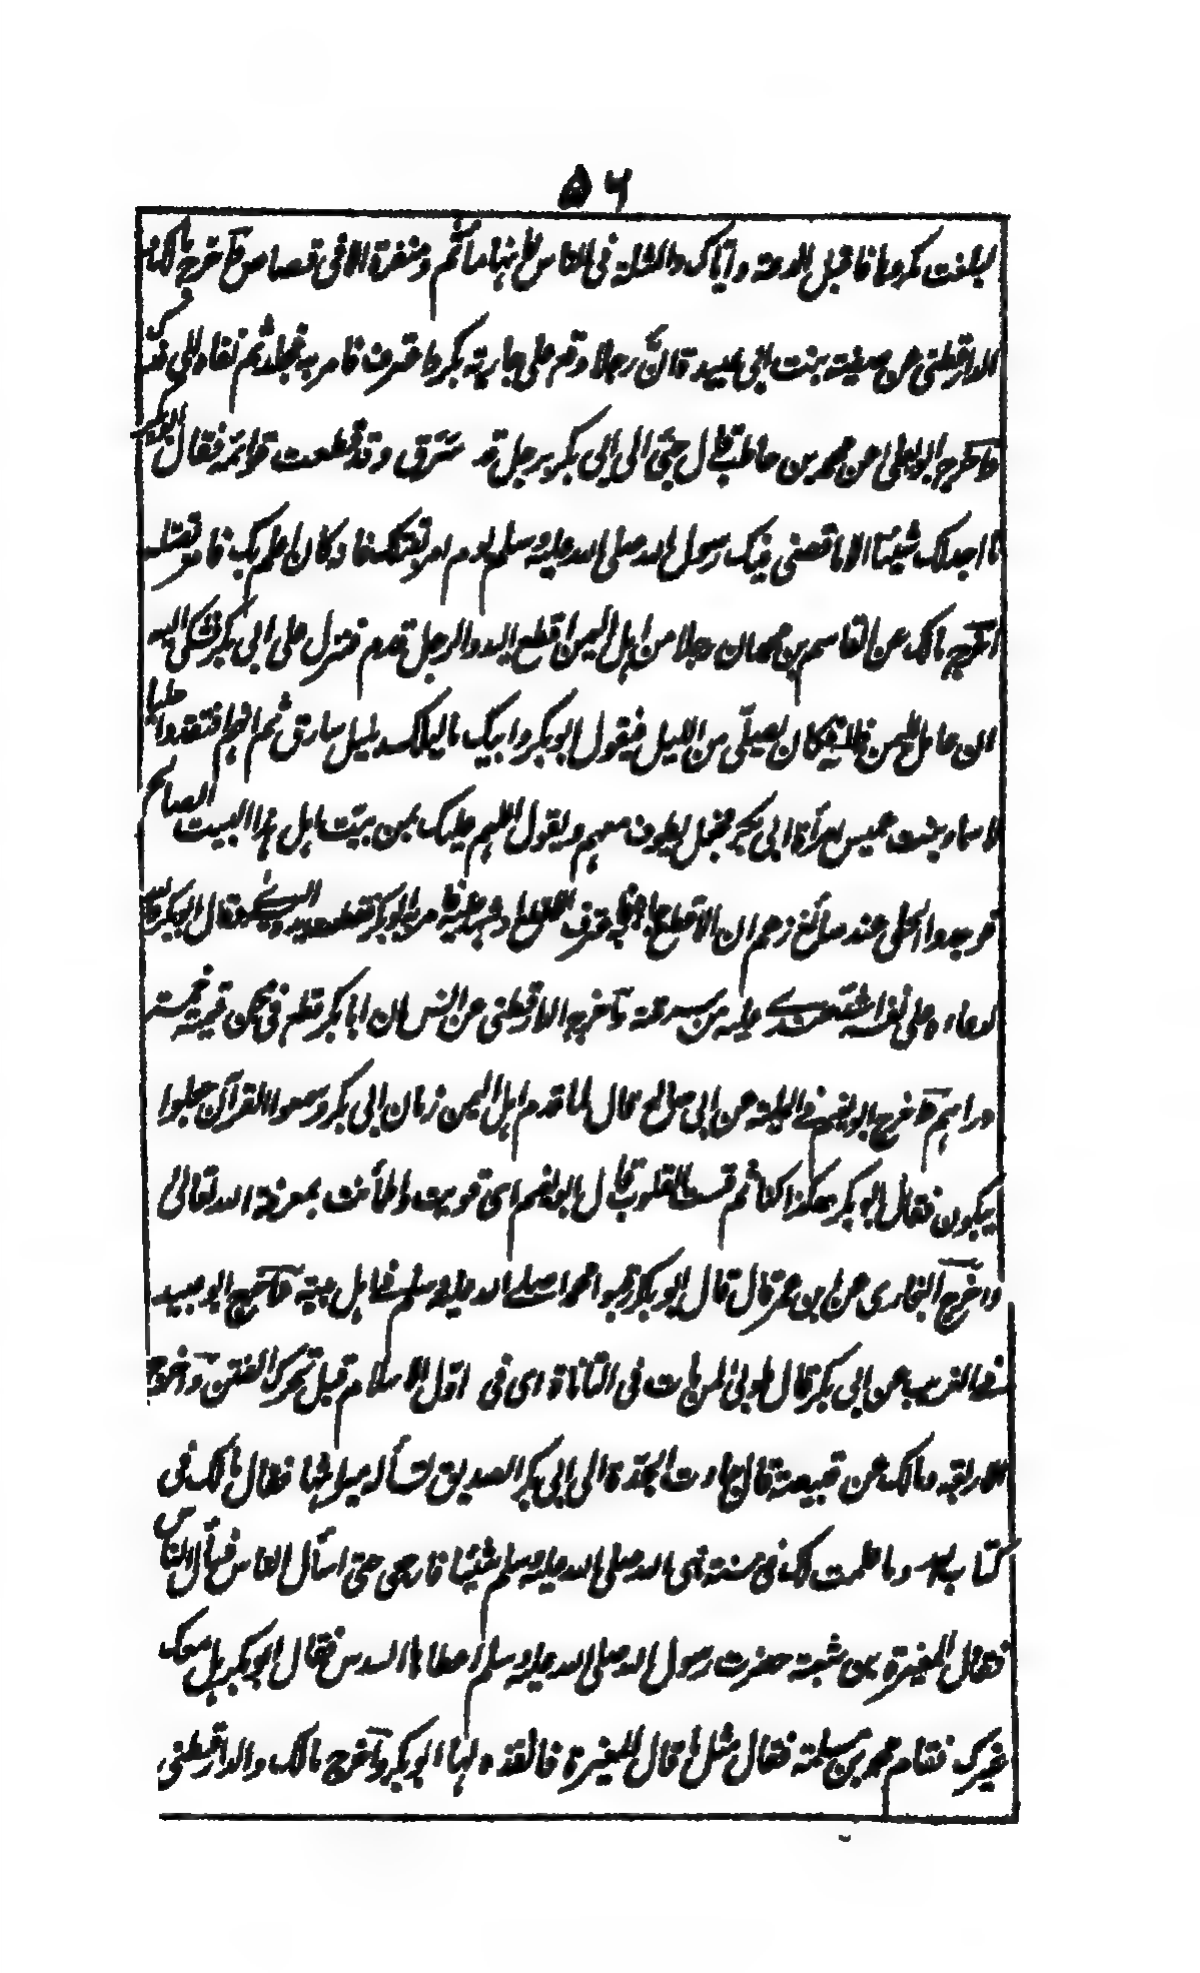 ۵۶
لبلغت مكروها فاقبل الدعة واياك والمثلة في الناس فانها مأثم ومنفرة الا في قصاص وآخرج مالك و
الدارقطني عن صفية بنت ابي عبيد ان رجلا وقع على جارية بكر فاعترف فامر به فجلد ثم نفاه الى فدك
وآخرج ابو يعلى عن محمد بن حاطب قال جئ الى ابي بكر برجل قد سرق وقد قطعت قوائمه فقال ابو بكر
ما اجد لك شيئا الا ما قضى فيك رسول الله صلى الله عليه وسلم يوم امر بقتلك فانه كان اعلم بك فامر بقتله
اخرج مالك عن القاسم بن محمد ان رجلا من اهل اليمن اقطع اليد والرجل قدم فنزل على ابي بكر فشكى اليه
ان عامل اليمن ظلمه فكان يصلي من الليل فيقول ابو بكر وابيك ما ليلك بليل سارق ثم انهم افتقدوا حليا
لاسماء بنت عميس امرأة ابي بكر فجعل يطوف معهم ويقول اللهم عليك بمن بيّت اهل هذا البيت الصالح
فوجدوا الحلي عند صائغ زعم ان الاقطع جاءه به فاعترف الاقطع او شهد عليه فامر به ابو بكر فقطعت يده اليسرى وقال ابو بكر والله
لدعاءه على نفسه اشد عندي عليه من سرقته وآخرج الدارقطني عن انس ان ابا بكر قطع في مجن قيمته خمسة
دراهم وآخرج ابو نعيم في الحلية عن ابي صالح قال لما قدم اهل اليمن زمان ابي بكر وسمعوا القرآن جعلوا
يبكون فقال ابو بكر هكذا كنا ثم قست القلوب قال ابو نعيم اى قويت واطمأنت بمعرفة الله تعالى
وآخرج البخاري عن ابن عمر قال قال ابو بكر ارقبوا محمدا صلى الله عليه وسلم في اهل بيته وآخرج ابو عبيد
في الغريب عن ابي بكر قال طوبى لمن مات في النأنأة اى في اوّل الاسلام قبل تحرك الفتن وآخرج
الاربعة ومالك عن قبيصة قال جاءت الجدّة الى ابي بكر الصديق تسأله ميراثها فقال مالك في
كتاب الله وما علمت لك في سنة نبي الله صلى الله عليه وسلم شيئا فارجعي حتى اسأل الناس فسأل الناس
فقال المغيرة بن شعبة حضرت رسول الله صلى الله عليه وسلم اعطاها السدس فقال ابو بكر هل معك
غيرك فقام محمد بن مسلمة فقال مثل ما قال المغيرة فانفذه لها ابو بكر وآخرج مالك والدارقطني